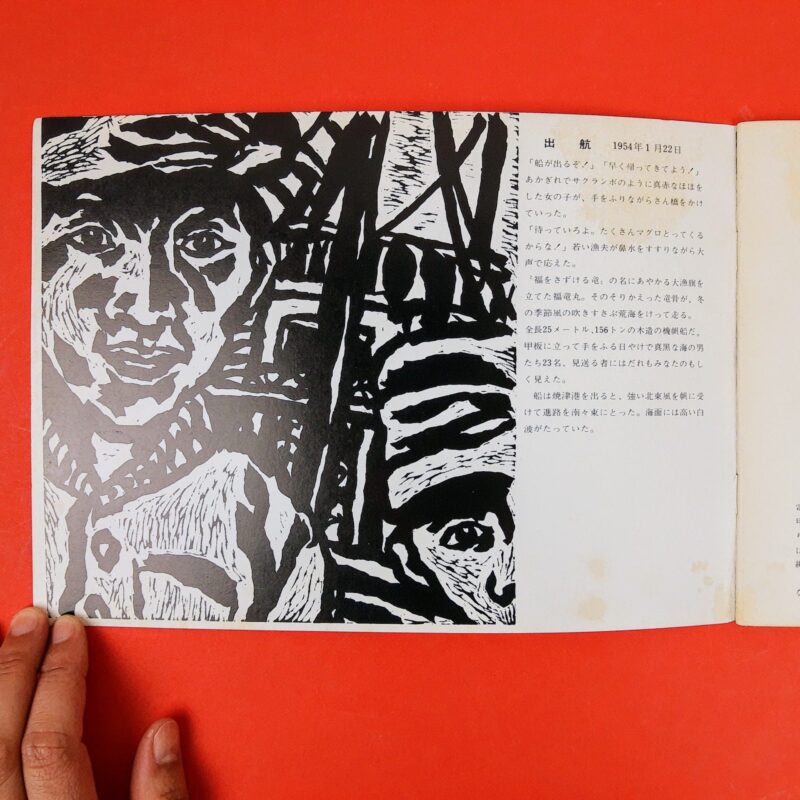 出航 1954年1月22日
「船が出るぞ!」「早く帰ってきてよう!」
あかぎれでサクランボのように真赤なほほを
した女の子が、手をふりながらさん橋をかけ
ていった。
「待っていろよ。たくさんマグロとってくる
からな!」若い漁夫が鼻水をすすりながら大
声で応えた。
『福をさずける竜』の名にあやかる大漁旗を
立てた福竜丸。そのそりかえった竜骨が、冬
の季節風の吹きすさぶ荒海をけって走る。
全長25メートル、156トンの木造の機帆船だ。
甲板に立って手をふる日やけで真黒な海の男
たち23名、見送る者にはだれもみなたのもし
く見えた。
船は焼津港を出ると、強い北東風を帆に受
けて進路を南々東にとった。海面には高い白
波がたっていた。